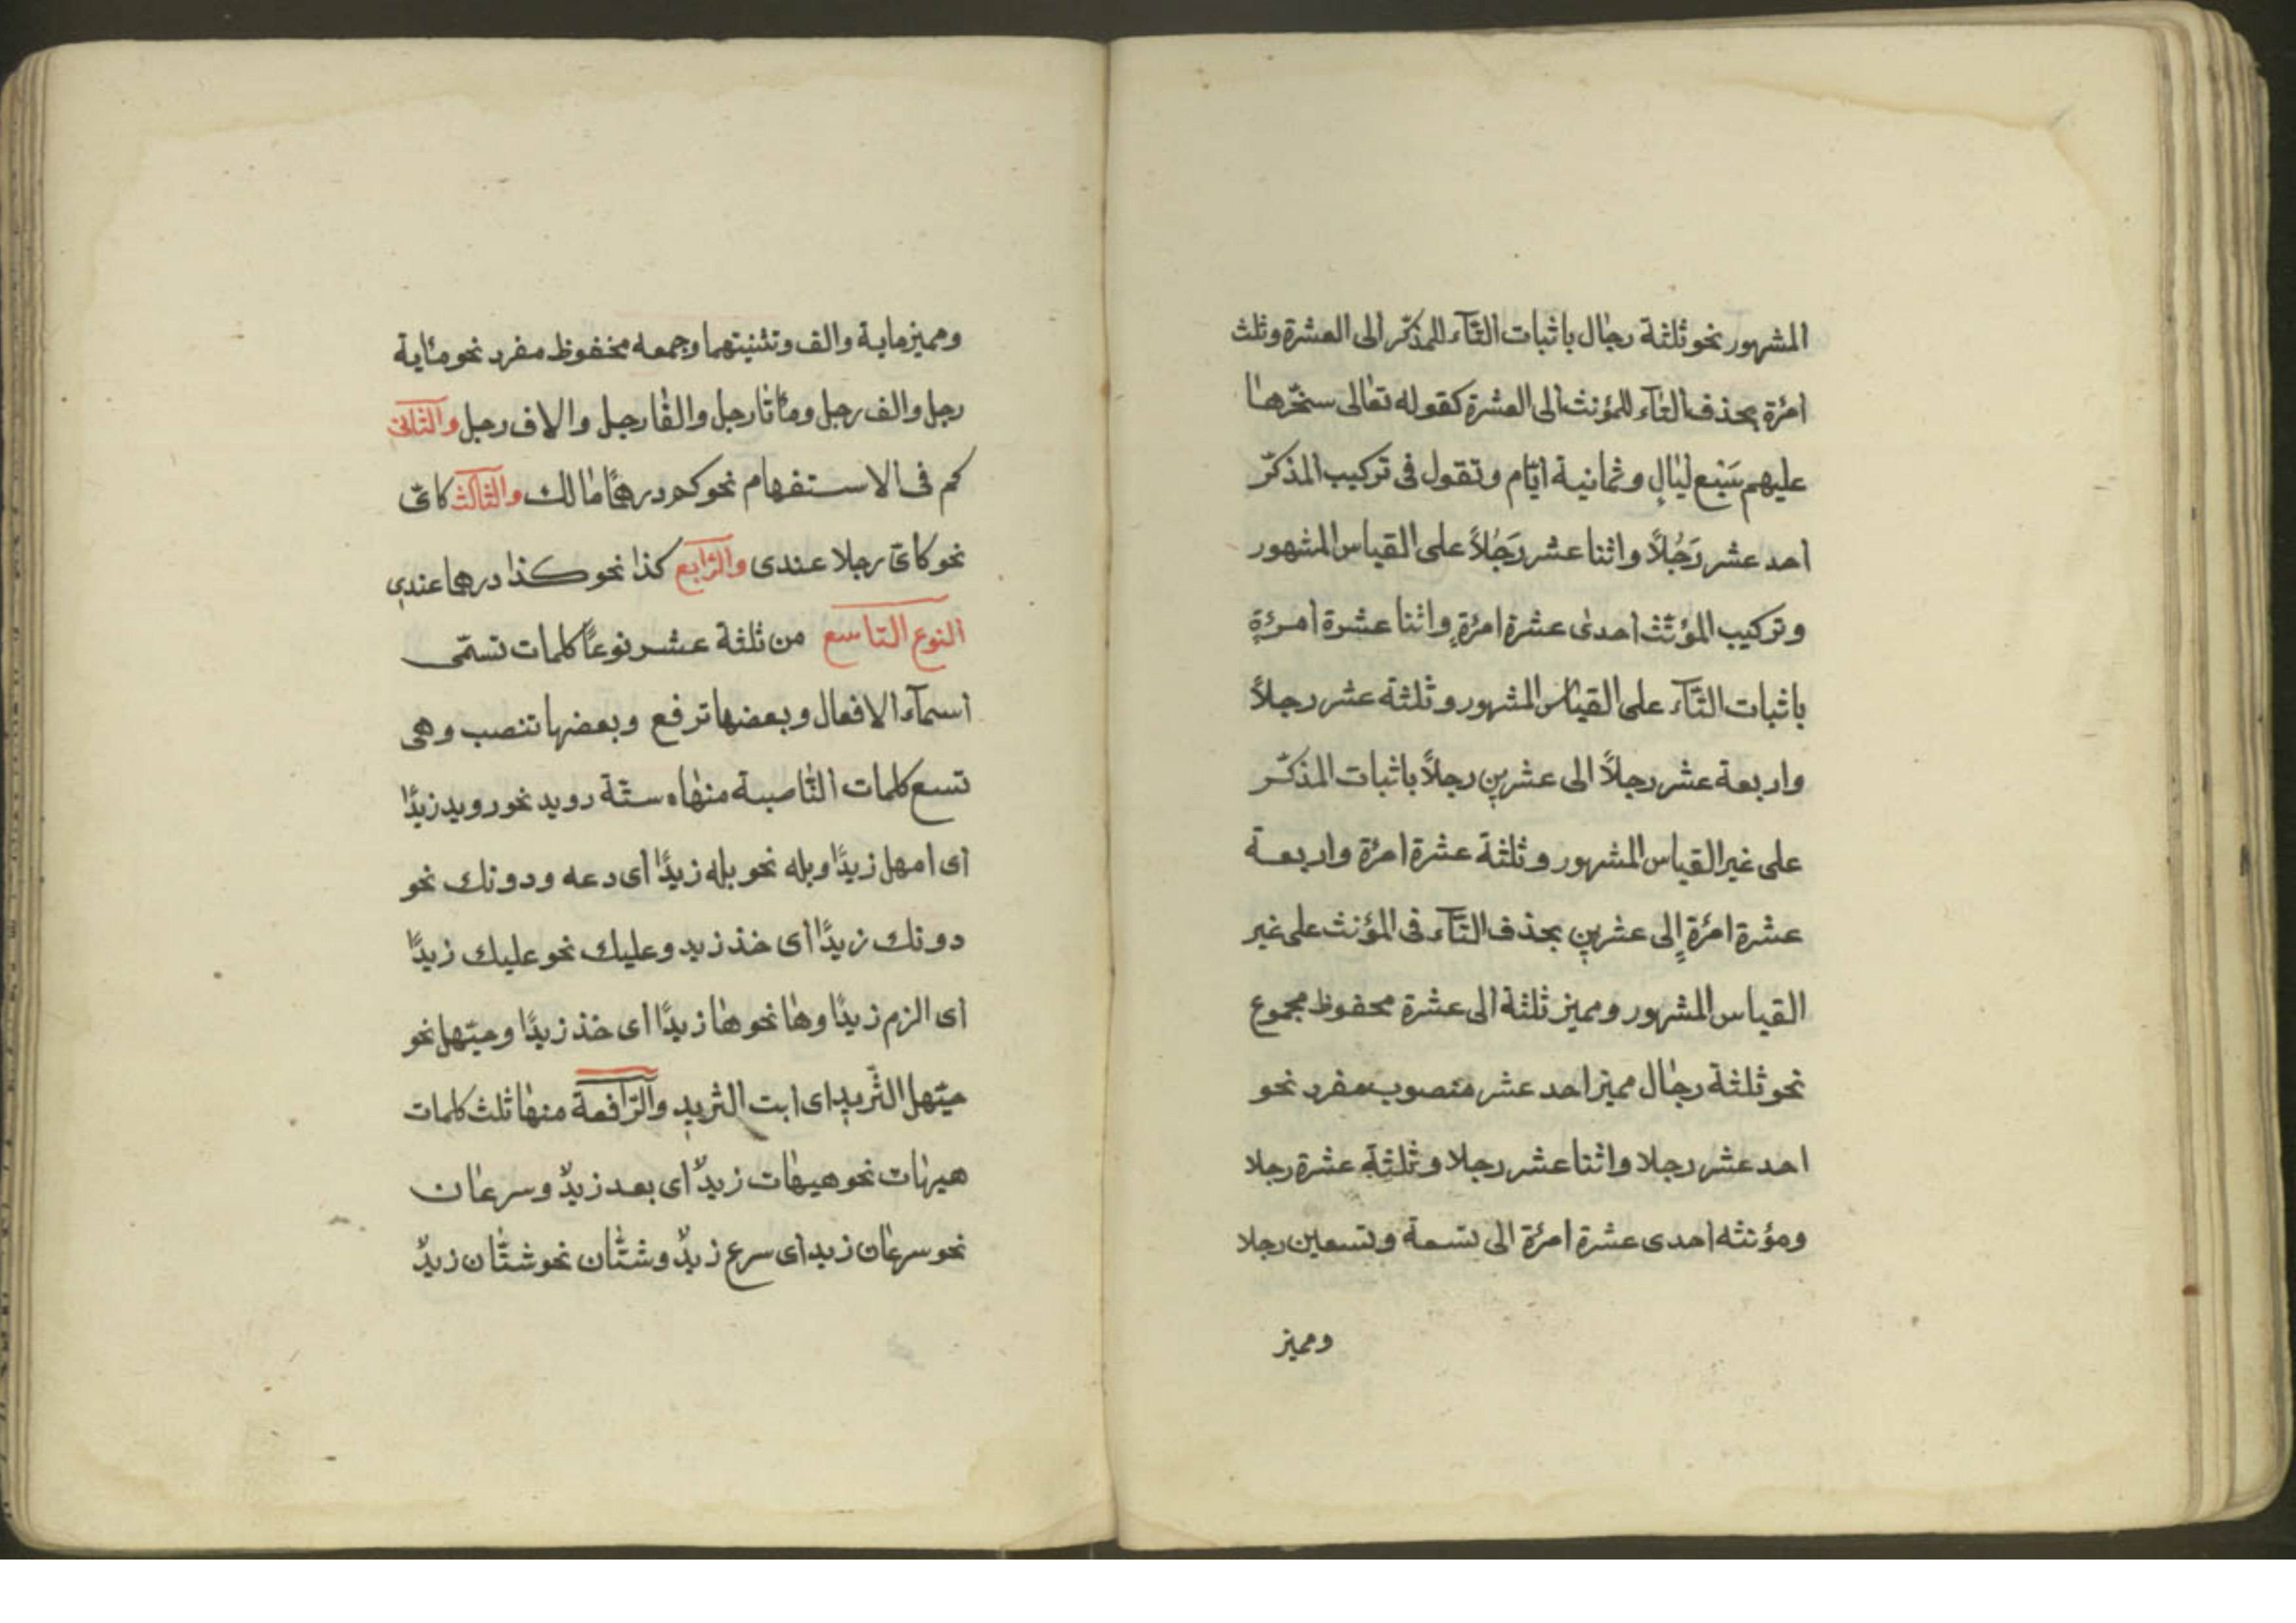 المشهور نحو ثلثة رجال باثبات التآء للمذكّر الى العشرة وثلث
امرُة بحذف التآء للمؤنث الى العشرة كقوله تعالى سخّرها
عليهم سَبْع ليالٍ وثمانية ايّام وتقول فى تركيب المذكّر
احد عشر رَجُلاً واثنا عشر رَجُلاً على القياس المشهور
وتركيب المؤنّث احدى عشرة امرُةٍ واثنا عشرة امرئةٍ
باثبات التّآء على القياس المشهور وثلثة عشر رجلاً
واربعة عشر رجلاً الى عشرين رجلاً باثبات المذكّر
على غير القياس المشهور وثلثة عشرة امرُة واربعة
عشرة امرُةٍ إلى عشرين بحذف التّآء فى المؤنث على غير
القياس المشهور ومميز ثلثة الى عشرة محفوظ مجموع
نحو ثلثة رجال مميز احد عشر منصوب مفرد نحو
احد عشر رجلا واثنا عشر رجلا وثلثة عشرة رجلا
ومؤنثه احدى عشرة امرئة الى تسعة وتسعين رجلا
ومميز
ومميز ماية والف وتثنيتهما وجمعه مخفوظ مفرد نحو مئاية
رجل والف رجل ومأتا رجل والفا رجل والاف رجل والثانى
كم فى الاستفهام نحو كم درهمًا مالك والثالث كاىّ
نحو كاىّ رجلا عندى والرّابع كذا نحو كذا درهما عندى
النوع التاسع من ثلثة عشر نوعًا كلمات تسمّى
اسمآء الافعال وبعضها ترفع وبعضها تنصب وهى
تسع كلمات النّاصبة منها ستّة رويد نحو رويد زيدًا
اى امهل زيدًا وبله نحو بله زيدًا اى دعه ودونك نحو
دونك زيدًا اى خذ زيد وعليك نحو عليك زيدًا
اى الزم زيدًا وها نحو ها زيدًا اى خذ زيدًا وحيّهل نحو
حيّهل الثّريد اى ايت الثريد والرّافعة منها ثلث كلمات
هيهات نحو هيهات زيدٌ اى بعد زيدٌ وسرعان
نحو سرعان زيد اى سرع زيدٌ وشتّان نحو شتّان زيدٌ